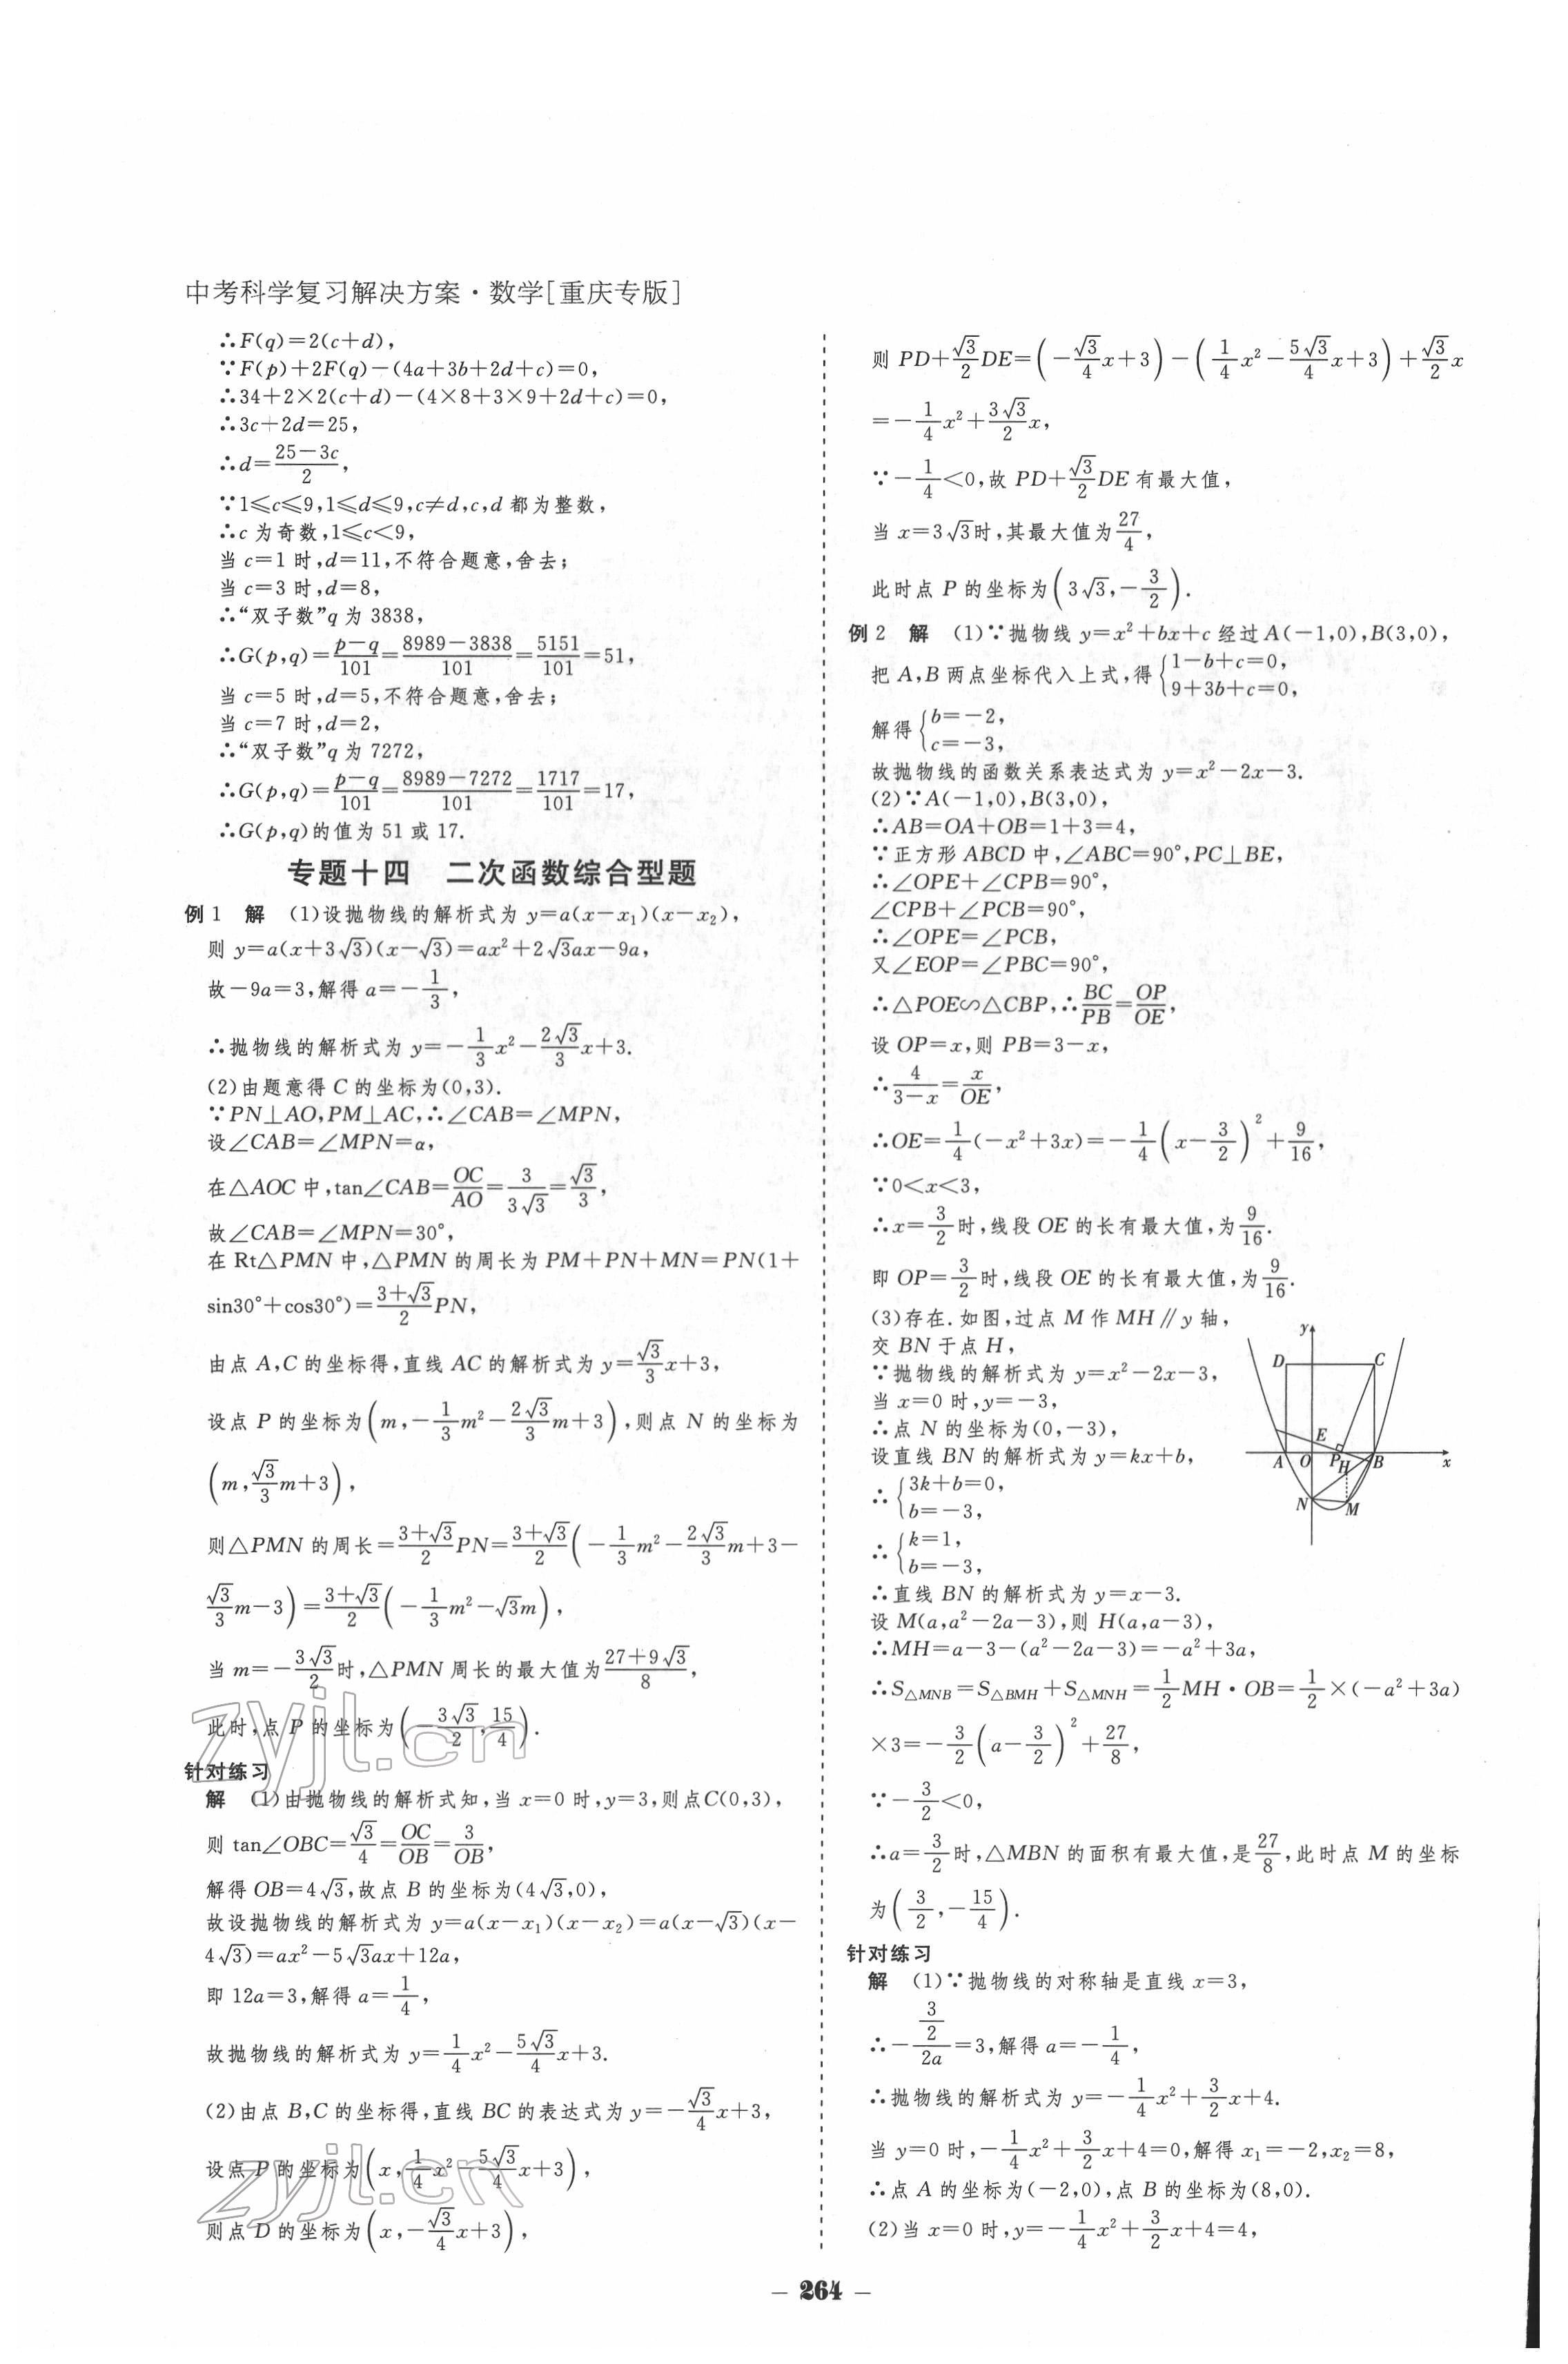 中考科学复习解决方案·数学[重庆专版]
∴F(q)=2(c+d),
∵F(p)+2F(q)-(4a+3b+2d+c)=0,
∴34+2×2(c+d)-(4×8+3×9+2d+c)=0,
∴3c+2d=25,
∴d=\frac{25-3c}{2},
∵1≤c≤9,1≤d≤9,c≠d,c,d 都为整数,
∴c 为奇数,1≤c<9,
当 c=1 时,d=11,不符合题意,舍去;
当 c=3 时,d=8,
∴“双子数”q 为 3838,
∴G(p,q)=\frac{p-q}{101}=\frac{8989-3838}{101}=\frac{5151}{101}=51,
当 c=5 时,d=5,不符合题意,舍去;
当 c=7 时,d=2,
∴“双子数”q 为 7272,
∴G(p,q)=\frac{p-q}{101}=\frac{8989-7272}{101}=\frac{1717}{101}=17,
∴G(p,q)的值为 51 或 17.
专题十四 二次函数综合型题
例 1 解 (1)设抛物线的解析式为 y=a(x-x₁)(x-x₂),
则 y=a(x+3√3)(x-√3)=ax²+2√3ax-9a,
故-9a=3,解得 a=-\frac{1}{3},
∴抛物线的解析式为 y=-\frac{1}{3}x²-\frac{2√3}{3}x+3.
(2)由题意得 C 的坐标为(0,3).
∵PN⊥AO,PM⊥AC,∴∠CAB=∠MPN,
设∠CAB=∠MPN=α,
在△AOC 中,tan∠CAB=\frac{OC}{AO}=\frac{3}{3√3}=\frac{√3}{3},
故∠CAB=∠MPN=30°,
在 Rt△PMN 中,△PMN 的周长为 PM+PN+MN=PN(1+
sin30°+cos30°)=\frac{3+√3}{2}PN,
由点 A,C 的坐标得,直线 AC 的解析式为 y=\frac{√3}{3}x+3,
设点 P 的坐标为(m,-\frac{1}{3}m²-\frac{2√3}{3}m+3),则点 N 的坐标为
(m,\frac{√3}{3}m+3),
则△PMN 的周长=\frac{3+√3}{2}PN=\frac{3+√3}{2}(-\frac{1}{3}m²-\frac{2√3}{3}m+3-
\frac{√3}{3}m-3)=\frac{3+√3}{2}(-\frac{1}{3}m²-√3m),
当 m=-\frac{3√3}{2}时,△PMN 周长的最大值为\frac{27+9√3}{8},
此时,点 P 的坐标为(-\frac{3√3}{2},\frac{15}{4}).
针对练习
解 (1)由抛物线的解析式知,当 x=0 时,y=3,则点C(0,3),
则 tan∠OBC=\frac{√3}{4}=\frac{OC}{OB}=\frac{3}{OB},
解得 OB=4√3,故点 B 的坐标为(4√3,0),
故设抛物线的解析式为 y=a(x-x₁)(x-x₂)=a(x-√3)(x-
4√3)=ax²-5√3ax+12a,
即 12a=3,解得 a=\frac{1}{4},
故抛物线的解析式为 y=\frac{1}{4}x²-\frac{5√3}{4}x+3.
(2)由点 B,C 的坐标得,直线 BC 的表达式为 y=-\frac{√3}{4}x+3,
设点 P 的坐标为(x,\frac{1}{4}x²-\frac{5√3}{4}x+3),
则点 D 的坐标为(x,-\frac{√3}{4}x+3),
则 PD+\frac{√3}{2}DE=(-\frac{√3}{4}x+3)-(\frac{1}{4}x²-\frac{5√3}{4}x+3)+\frac{√3}{2}x
=-\frac{1}{4}x²+\frac{3√3}{2}x,
∵-\frac{1}{4}<0,故 PD+\frac{√3}{2}DE 有最大值,
当 x=3√3时,其最大值为\frac{27}{4},
此时点 P 的坐标为(3√3,-\frac{3}{2}).
例 2 解 (1)∵抛物线 y=x²+bx+c 经过 A(-1,0),B(3,0),
把 A,B 两点坐标代入上式,得{1-b+c=0, 9+3b+c=0,
解得{b=-2, c=-3,
故抛物线的函数关系表达式为 y=x²-2x-3.
(2)∵A(-1,0),B(3,0),
∴AB=OA+OB=1+3=4,
∵正方形 ABCD 中,∠ABC=90°,PC⊥BE,
∴∠OPE+∠CPB=90°,
∠CPB+∠PCB=90°,
∴∠OPE=∠PCB,
又∠EOP=∠PBC=90°,
∴△POE∽△CBP,∴\frac{BC}{PB}=\frac{OP}{OE},
设 OP=x,则 PB=3-x,
∴\frac{4}{3-x}=\frac{x}{OE},
∴OE=\frac{1}{4}(-x²+3x)=-\frac{1}{4}(x-\frac{3}{2})²+\frac{9}{16},
∵0<x<3,
∴x=\frac{3}{2}时,线段 OE 的长有最大值,为\frac{9}{16}.
即 OP=\frac{3}{2}时,线段 OE 的长有最大值,为\frac{9}{16}.
(3)存在.如图,过点 M 作 MH∥y 轴,
交 BN 于点 H,
∵抛物线的解析式为 y=x²-2x-3,
当 x=0 时,y=-3,
∴点 N 的坐标为(0,-3),
设直线 BN 的解析式为 y=kx+b,
∴{3k+b=0, b=-3,
∴{k=1, b=-3,
∴直线 BN 的解析式为 y=x-3.
y
D
C
E
A
O
P
H
B
x
N
M
设 M(a,a²-2a-3),则 H(a,a-3),
∴MH=a-3-(a²-2a-3)=-a²+3a,
∴S△MNB=S△BMH+S△MNH=\frac{1}{2}MH·OB=\frac{1}{2}×(-a²+3a)
×3=-\frac{3}{2}(a-\frac{3}{2})²+\frac{27}{8},
∵-\frac{3}{2}<0,
∴a=\frac{3}{2}时,△MBN 的面积有最大值,是\frac{27}{8},此时点 M 的坐标
为(\frac{3}{2},-\frac{15}{4}).
针对练习
解 (1)∵抛物线的对称轴是直线 x=3,
∴-\frac{\frac{3}{2}}{2a}=3,解得 a=-\frac{1}{4},
∴抛物线的解析式为 y=-\frac{1}{4}x²+\frac{3}{2}x+4.
当 y=0 时,-\frac{1}{4}x²+\frac{3}{2}x+4=0,解得 x₁=-2,x₂=8,
∴点 A 的坐标为(-2,0),点 B 的坐标为(8,0).
(2)当 x=0 时,y=-\frac{1}{4}x²+\frac{3}{2}x+4=4,
zyjl.cn
zyjl.cn
- 264 -